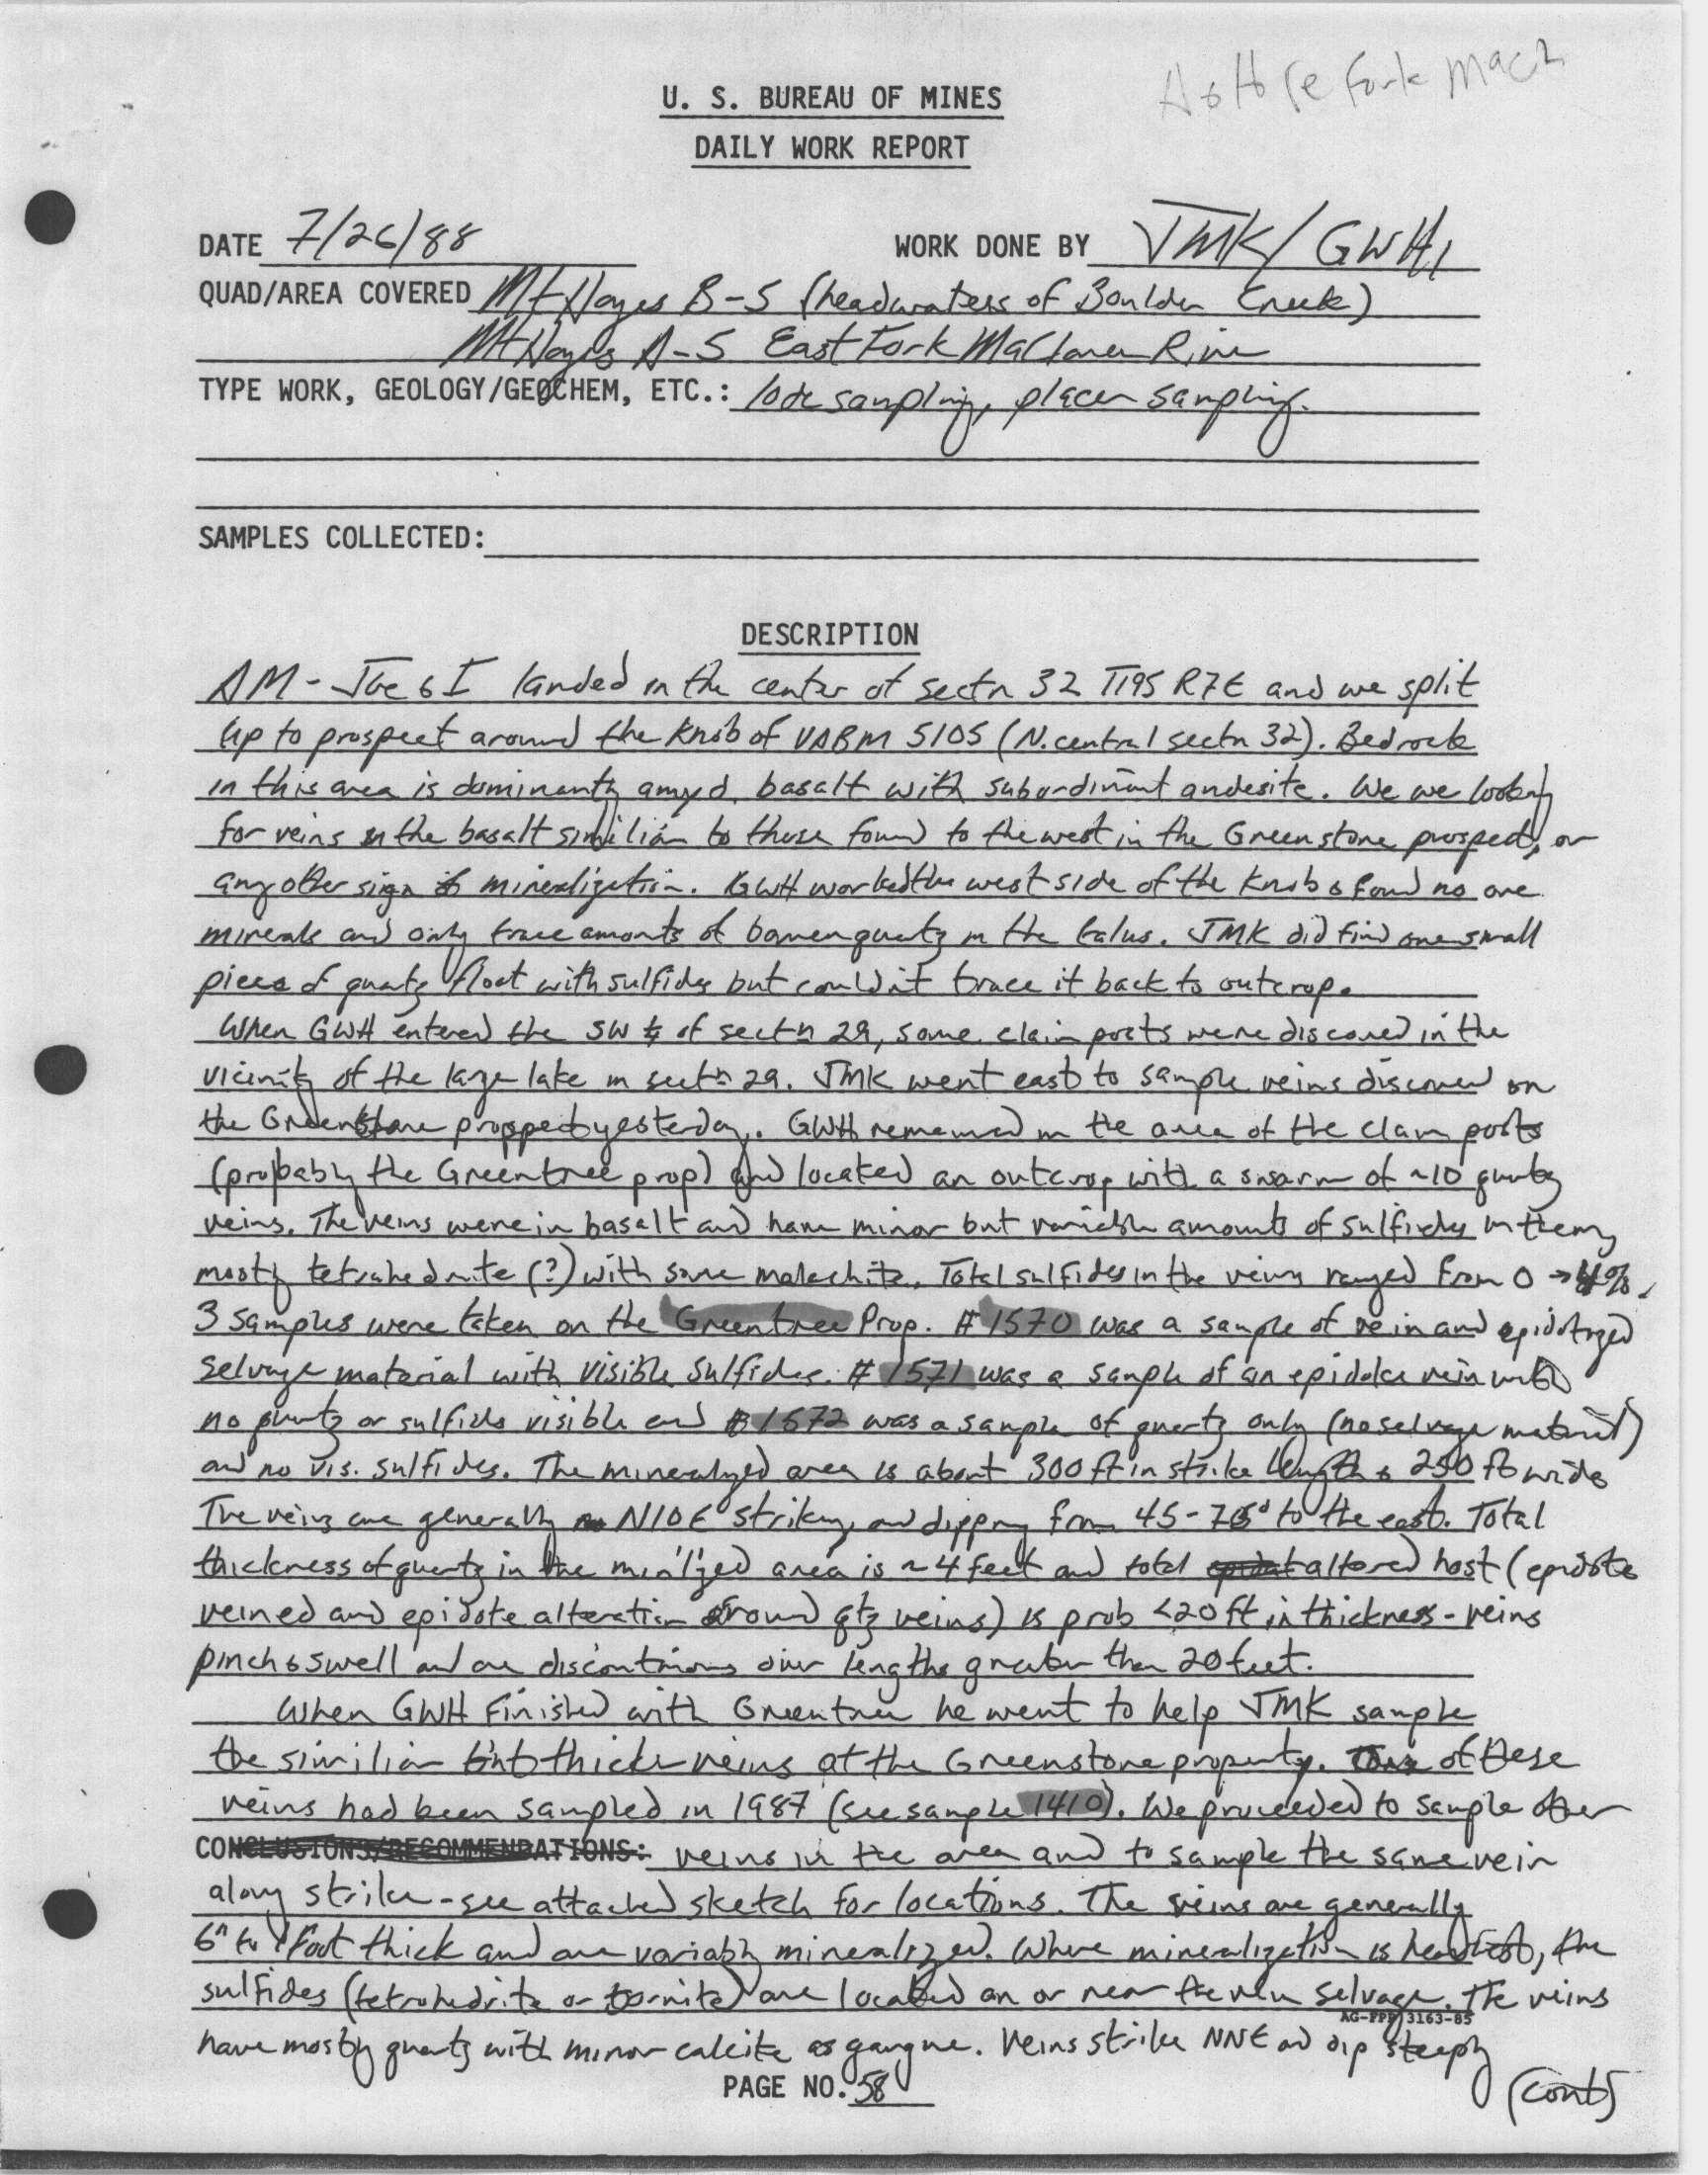 Fork Mac
U. S. BUREAU OF MINES
DAILY WORK REPORT
DATE 7/26/88 WORK DONE BY JMK/GWH
QUAD/AREA COVERED Mt Hayes B-5 (headwaters of Boulder Creek)
Mt Hayes A-5 East Fork Maclaren River
TYPE WORK, GEOLOGY/GEOCHEM, ETC.: lode sampling, placer sampling.
SAMPLES COLLECTED:
DESCRIPTION
AM - Joe & I landed in the center of sectn 32 T19S R7E and we split
up to prospect around the knob of VABM 5105 (N. central sectn 32). Bedrock
in this area is dominantly amyd. basalt with subordinant andesite. We we looking
for veins in the basalt similiar to those found to the west in the Greenstone prospect, or
any other sign of mineralization. GWH worked the west side of the knob & found no ore
minerals and only trace amonts of barren quartz in the talus. JMK did find one small
piece of quartz float with sulfides but couldn't trace it back to outcrop.
When GWH entered the SW ¼ of sectn 29, some claim posts were discovered in the
vicinity of the large lake in sectn 29. JMK went east to sample veins discovered on
the Greenstone prospect yesterday. GWH remained in the area of the claim posts
(probably the Greentree prop) and located an outcrop with a swarm of ~10 quartz
veins. The veins were in basalt and have minor but variable amounts of sulfides in them,
mostly tetrahedrite (?) with some malachite. Total sulfides in the veins ranged from 0 → 4%.
3 samples were taken on the Greentree Prop. # 1570 was a sample of vein and epidotized
selvage material with visible sulfides. # 1571 was a sample of an epidote vein with
no quartz or sulfides visible and # 1572 was a sample of quartz only (no selvage material)
and no vis. sulfides. The mineralyzed area is about 300 ft in strike length & 250 ft wide
The veins are generally N10E striking, and dipping from 45-75° to the east. Total
thickness of quartz in the min'l'zed area is ~4 feet and total altered host (epidote
veined and epidote alteration around qtz veins) is prob <20 ft in thickness - veins
pinch & swell and are discontinous over lengths greater than 20 feet.
When GWH finished with Greentree he went to help JMK sample
the similiar but thicker veins at the Greenstone property. of these
veins had been sampled in 1987 (see sample 1410). We proceeded to sample other
CONCLUSIONS/RECOMMENDATIONS: veins in the area and to sample the same vein
along strike - see attached sketch for locations. The veins are generally
6" to 1 foot thick and are variably mineralized. Where mineralization is heaviest, the
sulfides (tetrahedrite or bornite) are located on or near the vein selvage. The veins
AG-FPP 3163-85
have mostly quartz with minor calcite as gangue. Veins strike NNE and dip steeply
PAGE NO. 58 (cont)